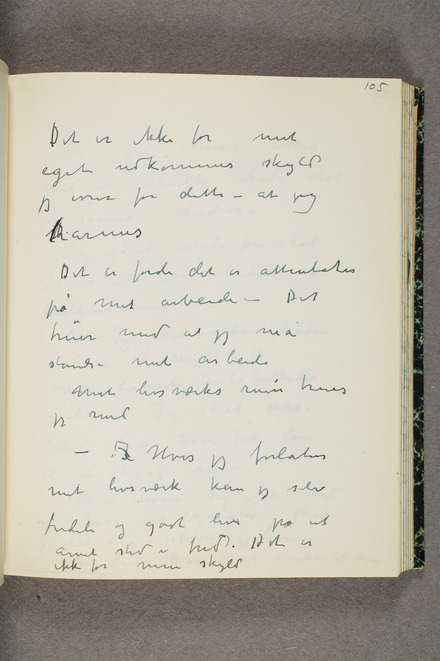 105
Det er ikke for mit
eget udkommes skyld
jeg for dette – at jeg
harmes
Det er fordi det er attentater
på mit arbeide – Det
truer med at jeg må
standse mit arbeide
Mit livsværks trues
jeg med
– Hvis jeg forlater
mit livsværk kan jeg selv
og godt leve på et
annet sted i fred. Det er
ikke for min skyld